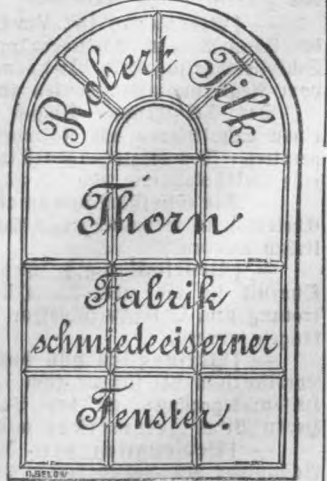 Robert Tilk
Thorn
Fabrik
schmiedeeiserner
Fenster.
G. BELOW